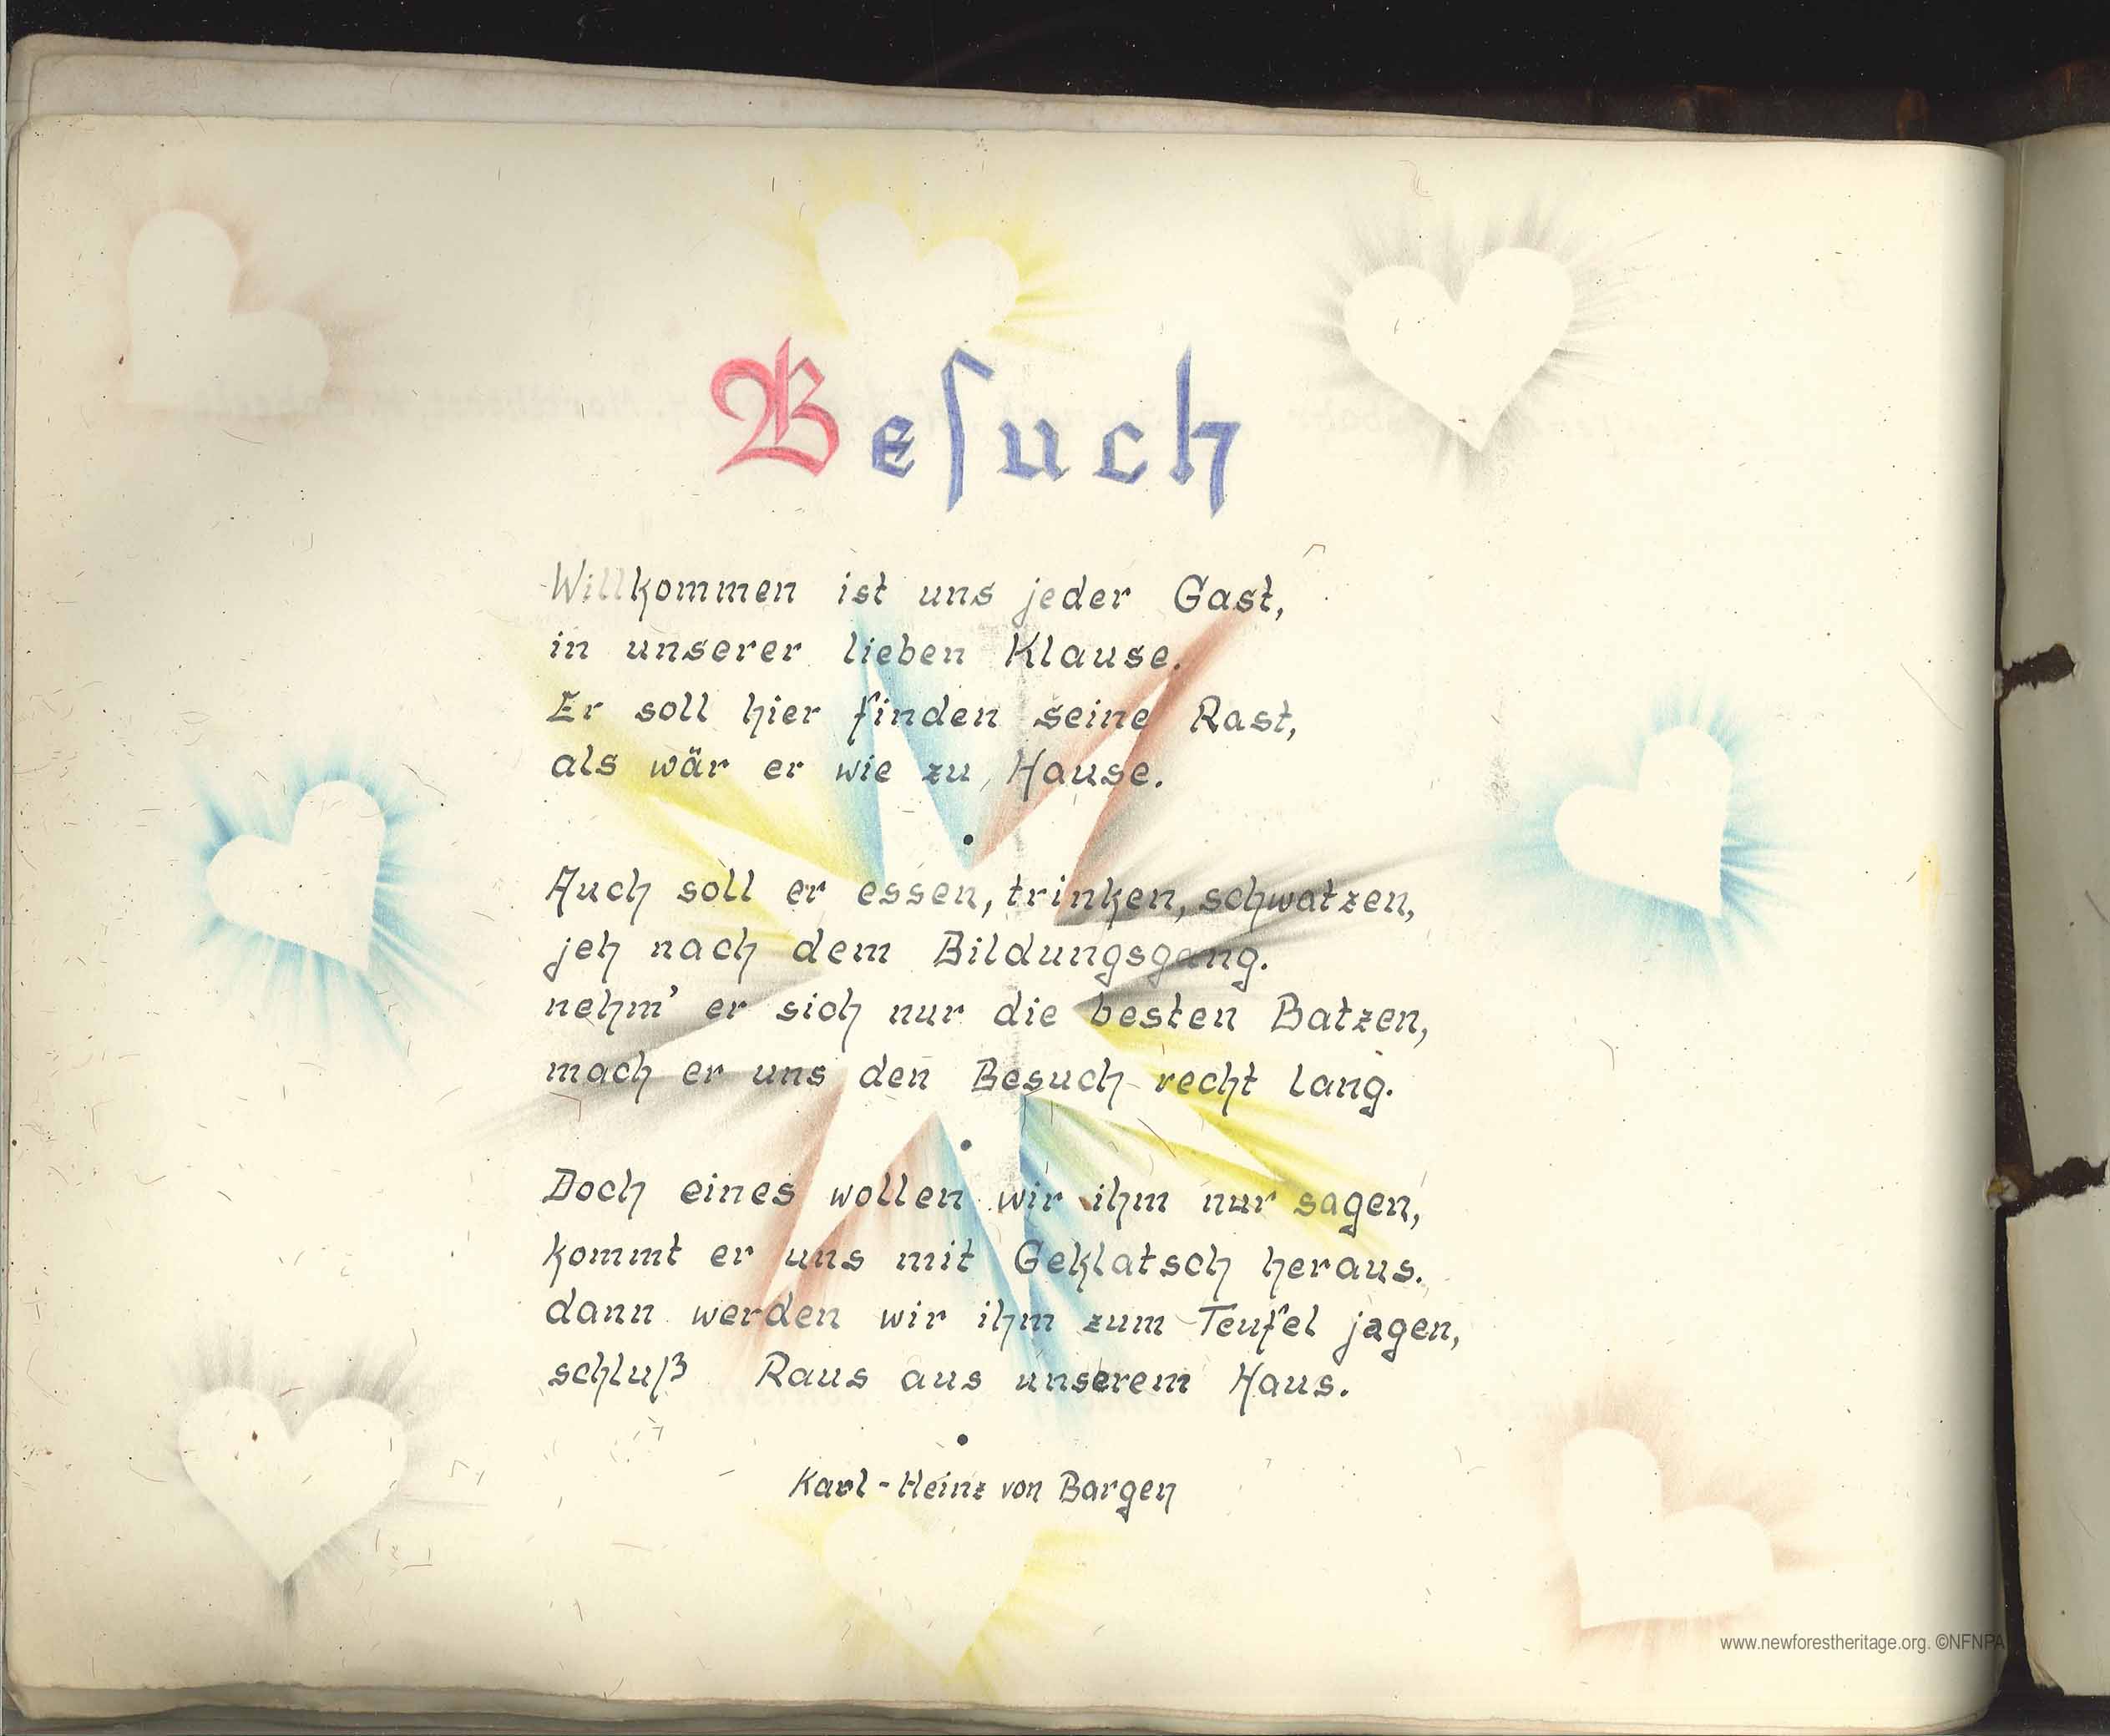 Besuch
Willkommen ist uns jeder Gast,
in unserer lieben Klause.
Er soll hier finden seine Rast,
als wär er wie zu Hause.
Auch soll er essen, trinken, schwatzen,
jeh nach dem Bildungsgang.
nehm' er sich nur die besten Batzen,
mach er uns den Besuch recht lang.
Doch eines wollen wir ihm nur sagen,
kommt er uns mit Geklatsch heraus.
dann werden wir ihm zum Teufel jagen,
schluß Raus aus unserem Haus.
Karl-Heinz von Bargen
www.newforestheritage.org. ©NFNPA